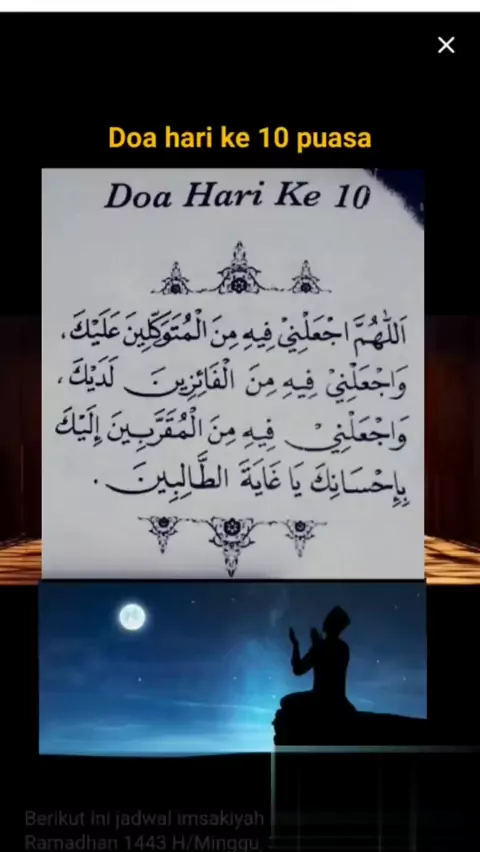 Doa hari ke 10 puasa
Doa Hari Ke 10
اَللّٰهُمَّ اجْعَلْنِيْ فِيْهِ مِنَ الْمُتَوَكِّلِينَ عَلَيْكَ،
وَاجْعَلْنِيْ فِيْهِ مِنَ الْفَائِزِينَ لَدَيْكَ،
وَاجْعَلْنِيْ فِيْهِ مِنَ الْمُقَرَّبِينَ إِلَيْكَ
بِإِحْسَانِكَ يَا غَايَةَ الطَّالِبِينَ .
Berikut ini jadwal imsakiyah
Ramadhan 1443 H/Minggu